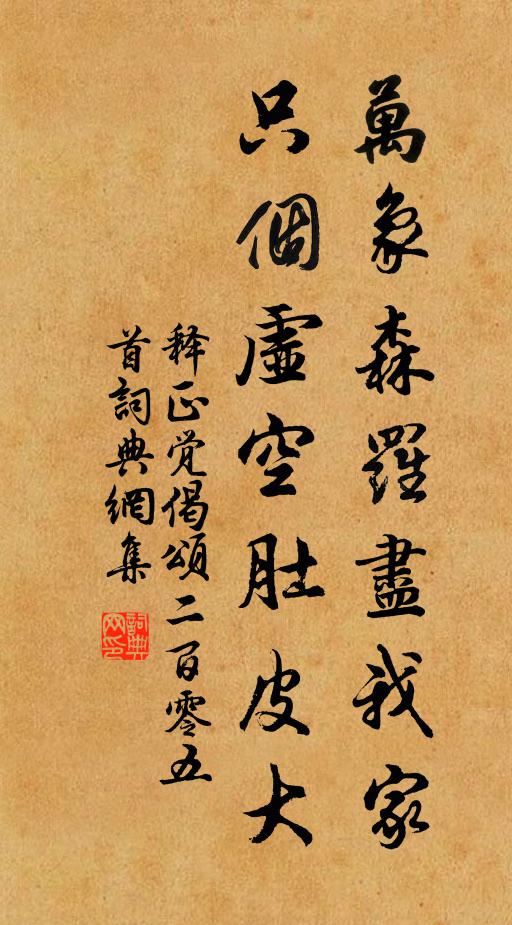 萬象森羅盡我家
只個虛空肚皮大
释正覚偈頌二百零五
首詞典網集
詞典网印